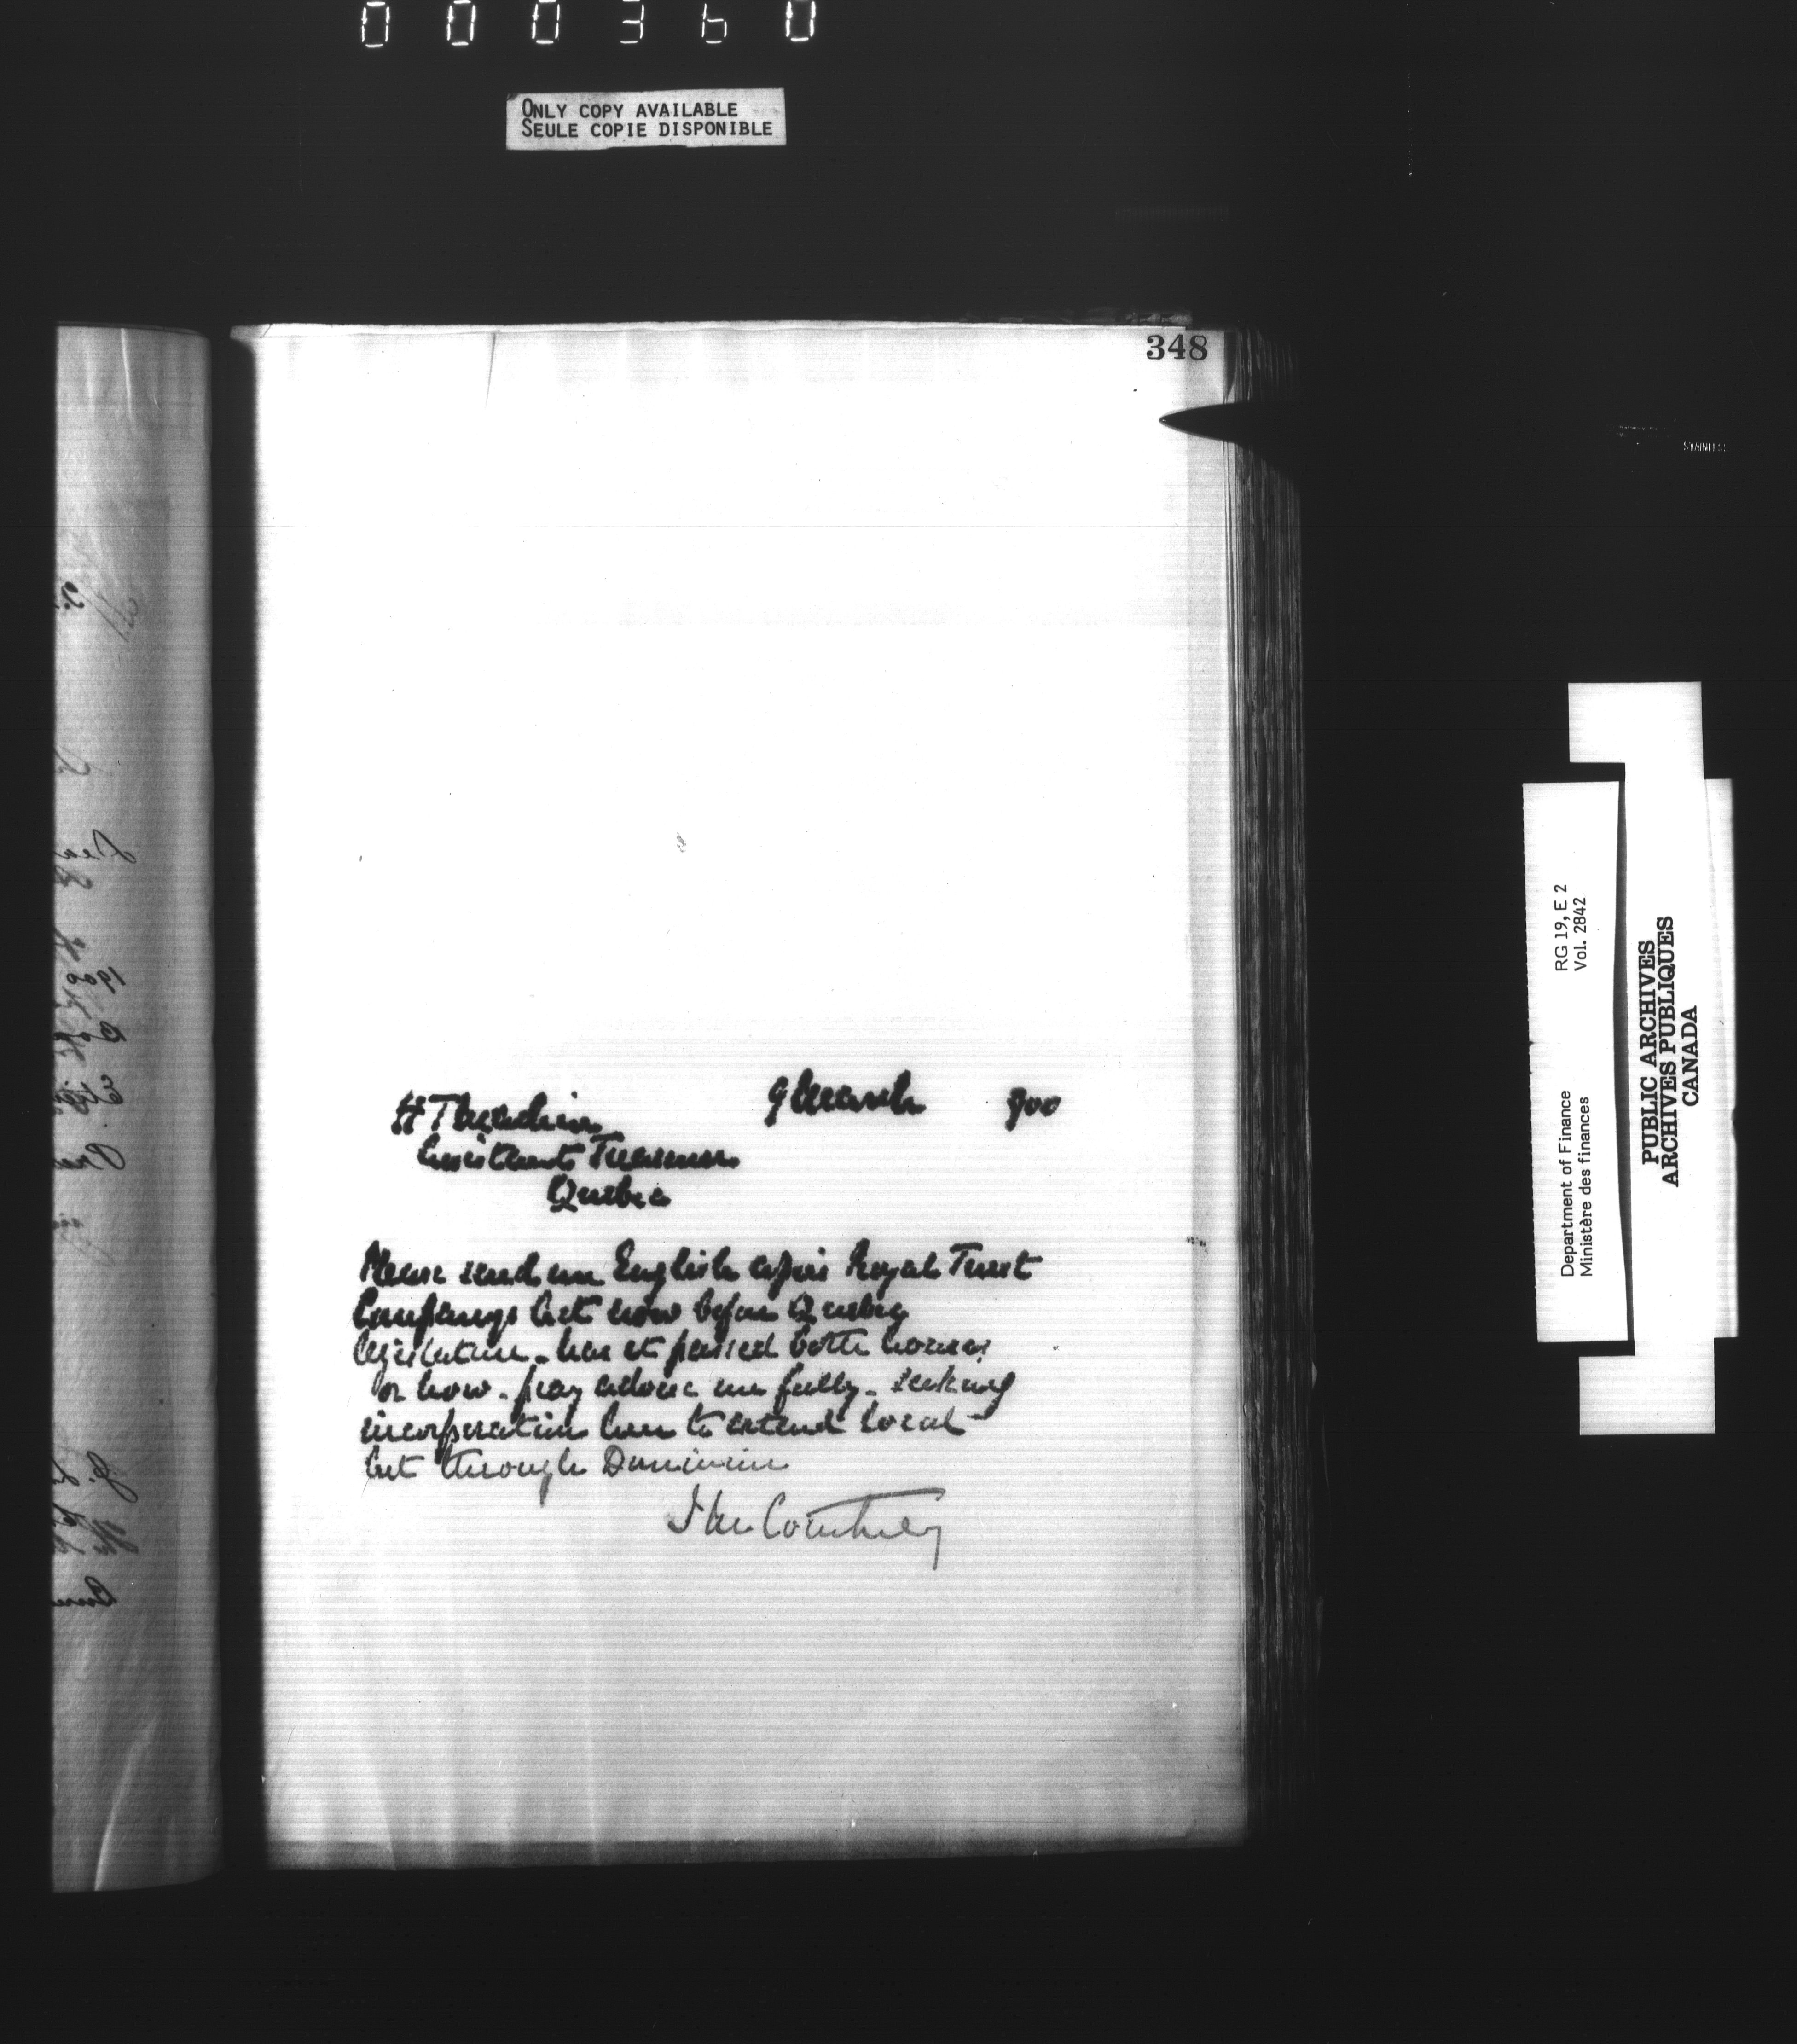 000360
ONLY COPY AVAILABLE
SEULE COPIE DISPONIBLE
348
9 March 900
H T Machin
Assistant Treasurer
Quebec
Please send me English copies Royal Trust
Companys Act now before Quebec
legislature - has it passed both houses
or how - pray advise me fully - seeking
incorporation here to extend local
Act through Dominion
J M Courtney
RG 19, E 2
Vol. 2842
Department of Finance
Ministère des finances
PUBLIC ARCHIVES
ARCHIVES PUBLIQUES
CANADA